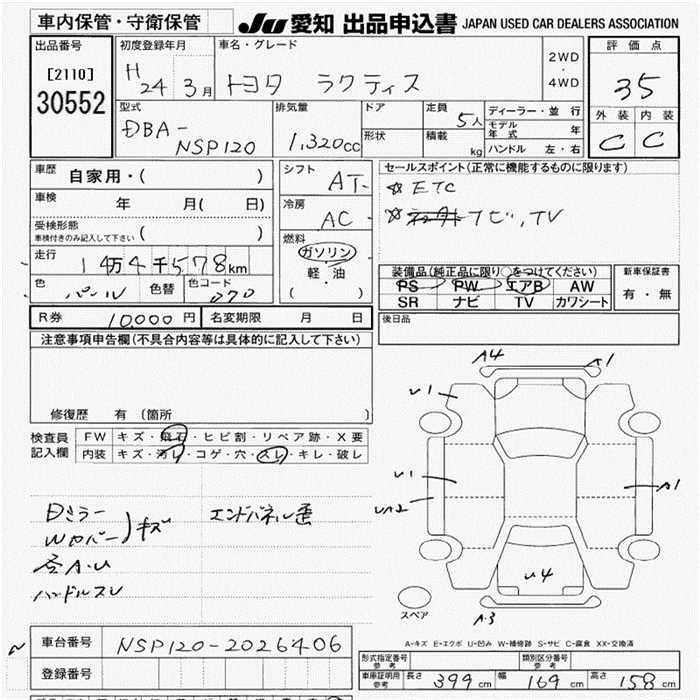 車内保管・守衛保管
JU 愛知 出品申込書 JAPAN USED CAR DEALERS ASSOCIATION
出品番号
[2110]
30552
初度登録年月
H 24 3月
車名・グレード
トヨタ ラクティス
2WD
・
4WD
評価点
35
外装 内装
C C
型式
DBA-
NSP120
排気量
1,320cc
ドア
形状
定員
5人
積載
kg
ディーラー・並行
モデル年式 年
ハンドル 左・右
車歴
自家用・( )
車検 年 月( 日)
受検形態
車検付きのみ記入して下さい ( )
走行
14万4千578km
色
パール
色替
色コード
070
シフト
AT
冷房
AC
燃料
ガソリン
軽・油
( )
セールスポイント(正常に機能するものに限ります)
☆ETC
☆社外ナビ,TV
装備品(純正品に限り○をつけてください)
PS PW エアB AW
SR ナビ TV カワシート
新車保証書
有・無
R券 10,000円 名変期限 月 日
後日品
注意事項申告欄(不具合内容等は具体的に記入して下さい)
修復歴 有 (箇所 )
検査員
記入欄
FW キズ・飛石・ヒビ割・リペア跡・X要
内装 キズ・汚レ・コゲ・穴・スレ・キレ・破レ
Dミラー
Wカバー
キズ
各A.U
ハンドルスレ
エンドパネル歪
A4 A1
U1
U1
UA2
A1
U4
A3
スペア
A-キズ E-エクボ U-凹み W-補修跡 S-サビ C-腐食 XX-交換済
車台番号 NSP120-2026406
登録番号
形式指定番号
参考
類別区分番号
参考
車庫証明用
参考
長さ 399cm 幅 169cm 高さ 158cm